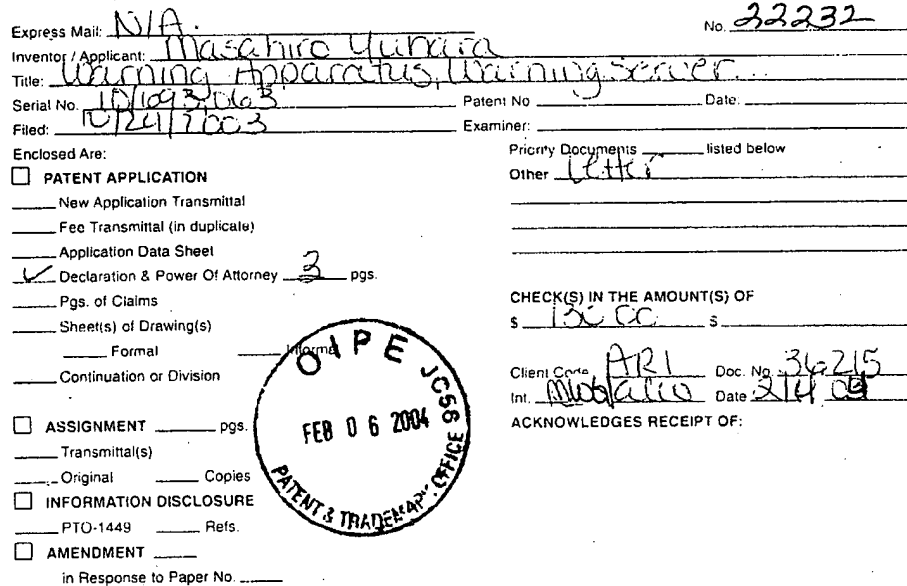 Express Mail: N/A. No. 22232
Inventor / Applicant: Masahiro Yuhara
Title: Warning Apparatus, Warning Server...
Serial No. 10/693,063 Patent No Date:
Filed: 10/24/2003 Examiner:
Enclosed Are:
Priority Documents listed below
Other Letter
PATENT APPLICATION
New Application Transmittal
Fee Transmittal (in duplicate)
Application Data Sheet
✓ Declaration & Power Of Attorney 3 pgs.
Pgs. of Claims
Sheet(s) of Drawing(s)
Formal Informal
Continuation or Division
ASSIGNMENT pgs.
Transmittal(s)
Original Copies
INFORMATION DISCLOSURE
PTO-1449 Refs.
AMENDMENT
in Response to Paper No.
CHECK(S) IN THE AMOUNT(S) OF
$ 130.00 $
Client Code ARI Doc. No. 36215
Int. Date 2/4/04
ACKNOWLEDGES RECEIPT OF:
OIPE JC56
FEB 06 2004
PATENT & TRADEMARK OFFICE